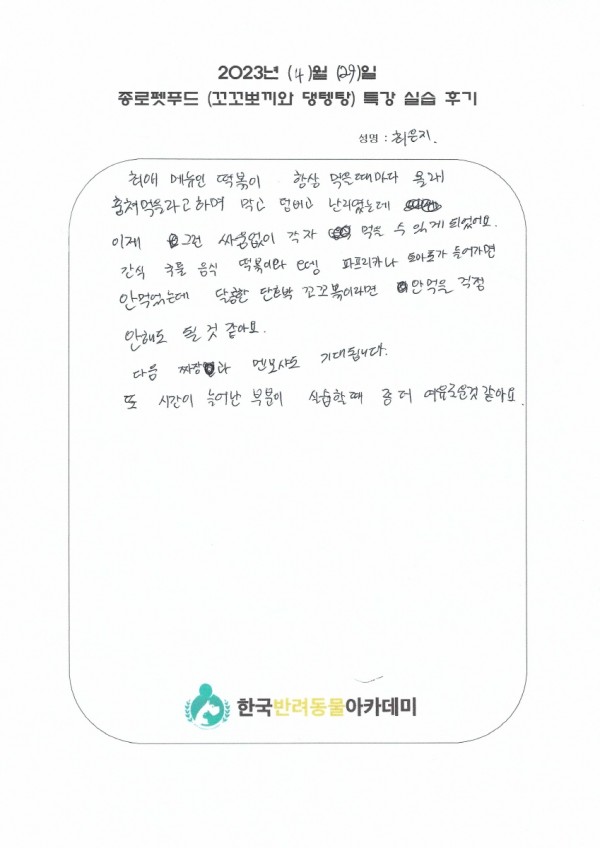 2023년 (4)월 (29)일
종로펫푸드 (꼬꼬뽀끼와 댕텡탕) 특강 실습 후기
성명 : 최은지.
최애 메뉴인 떡볶이 항상 먹을때마다 몰래
훔쳐먹을라고하며 막고 덤비고 난리였는데
이제 그런 싸움없이 각자 먹을 수 있게 되었어요.
간식 주를 음식 떡볶이와 파프리카나 토마토가 들어가면
안먹었는데 달콤한 단호박 꼬꼬볶이라면 안먹을 걱정
안해도 될 것 같아요.
다음 짜장과 멘보샤도 기대됩니다.
또 시간이 늘어난 부분이 실습할때 좀 더 여유로운것 같아요.
한국반려동물아카데미